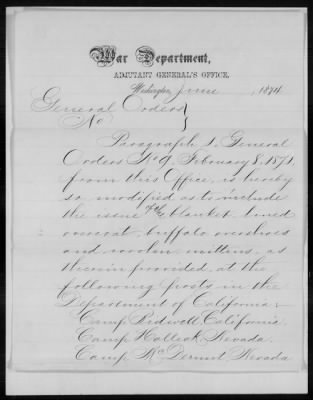 War Department,
ADJUTANT GENERAL'S OFFICE,
Washington, June , 1874
General Orders }
No
Paragraph 1, General
Orders No 9, February 8, 1871,
from this Office, is hereby
so modified as to include
the issue of the blanket lined
overcoat, buffalo overshoes
and woolen mittens, as
therein provided, at the
following posts in the
Department of California:
Camp Bidwell, California,
Camp Halleck, Nevada,
Camp McDermit, Nevada